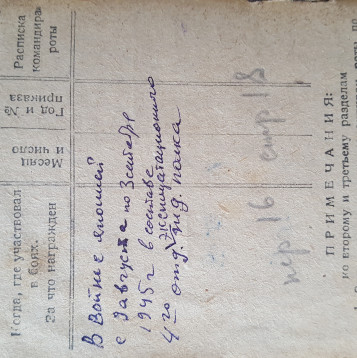 Когда, где участвовал
в боях.
За что награжден
Месяц
и число
Год и №
приказа
Расписка
командира
роты
В войне с японией
с 9 августа по 3 сентября
1945 г в составе
4го отд. Эксплуатационного
ж.д. полка
стр 18
ПРИМЕЧАНИЯ:
по второму и третьему разделам